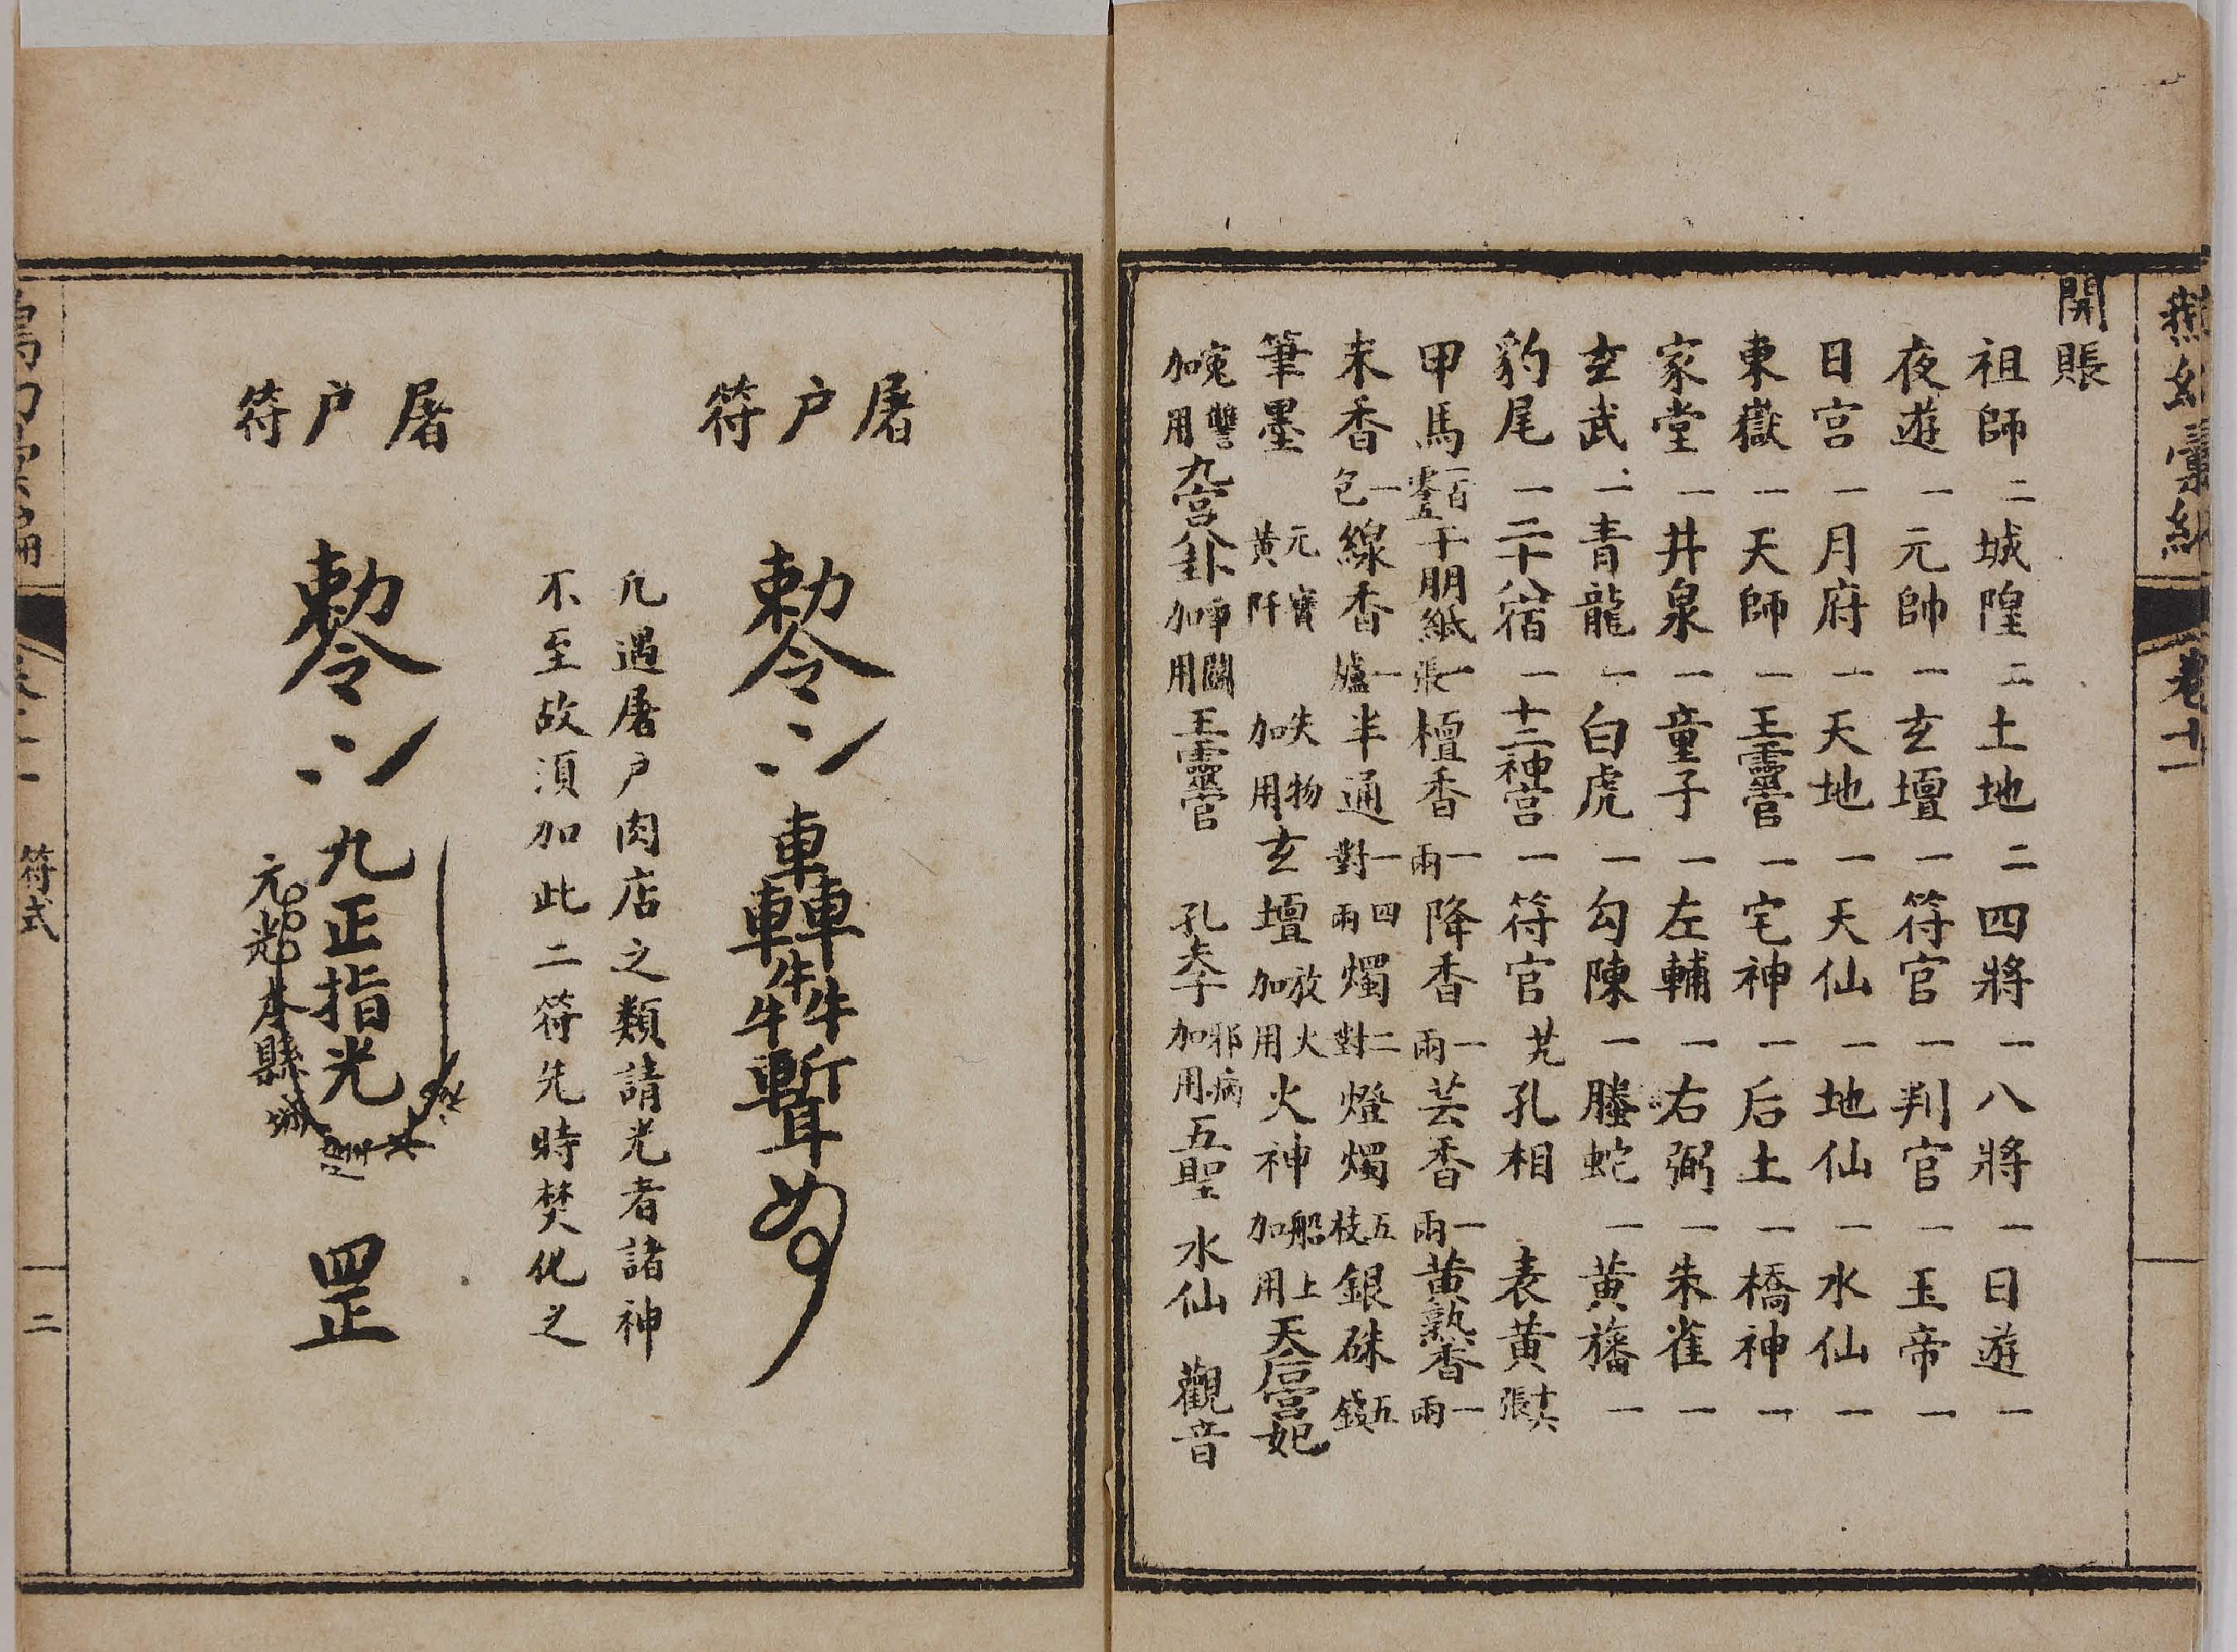 卷十一
開賬
祖師二城隍二土地二四將一八將一日遊一
夜遊一元帥一玄壇一符官一判官一玉帝一
日宮一月府一天地一天仙一地仙一水仙一
東嶽一天師一王靈官一宅神一后土一橋神一
家堂一井泉一童子一左輔一右弼一朱雀一
玄武一青龍一白虎一勾陳一螣蛇一黃旛一
豹尾一二十八宿一十二神宮一符官孔相表黃張
甲馬一百零五千朋紙一張檀香一兩降香一兩芸香一兩黃熟香一兩
末香一包線香一爐半通一對四兩燭二對燈燭五枝銀硃五錢
筆墨元寶黃阡失物加用玄壇放火加用火神船上加用天后宮妃
寃讐加用九宮八卦爭鬪加用王靈官孔夫子邪病加用五聖水仙觀音
屠户符
敕令
凢遇屠户肉店之類請光者諸神
不至故須加此二符先時焚化之
屠户符
敕令
九正指光
本縣
罡
符式
二